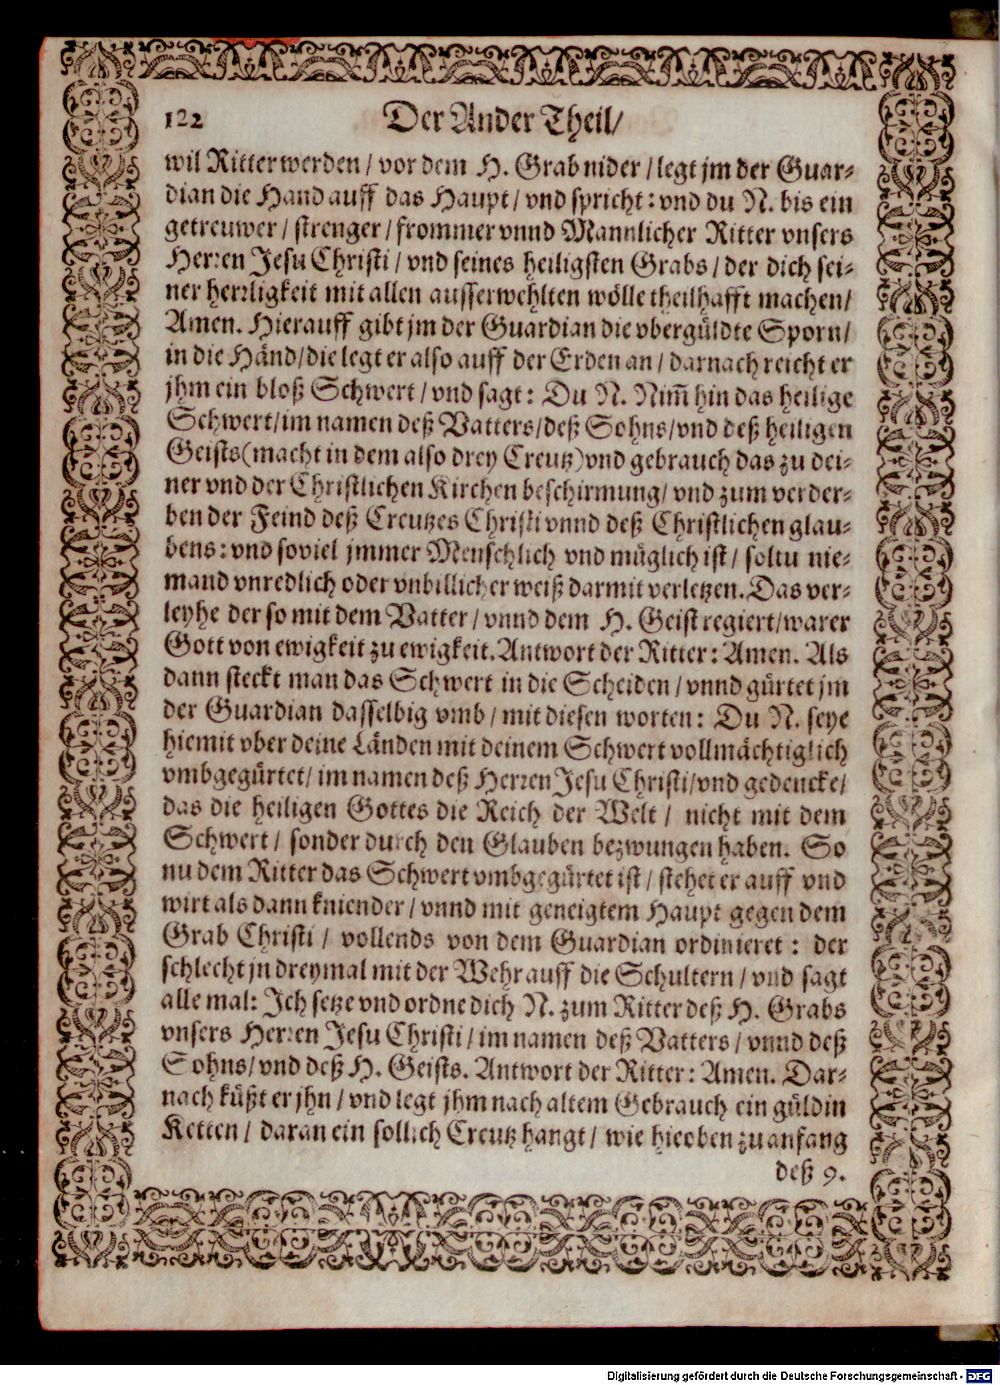 122 Der Ander Theil/
wil Ritter werden / vor dem H. Grab nider / legt jm der Guar-
dian die Hand auff das Haupt / vnd spricht: vnd du N. bis ein
getreuwer / strenger / frommer vnnd Mannlicher Ritter vnsers
Herren Jesu Christi / vnd seines heiligsten Grabs / der dich sei-
ner herrligkeit mit allen ausserwehlten wölle theilhafft machen/
Amen. Hierauff gibt jm der Guardian die vbergüldte Sporn/
in die Händ/die legt er also auff der Erden an / darnach reicht er
jhm ein bloß Schwert / vnd sagt: Du N. Nim̃ hin das heilige
Schwert/im namen deß Vatters/deß Sohns/vnd deß heiligen
Geists(macht in dem also drey Creutz)vnd gebrauch das zu dei-
ner vnd der Christlichen Kirchen beschirmung/ vnd zum verder-
ben der Feind deß Creutzes Christi vnnd deß Christlichen glau-
bens: vnd soviel jmmer Menschlich vnd müglich ist/ soltu nie-
mand vnredlich oder vnbillicher weiß darmit verletzen. Das ver-
leyhe der so mit dem Vatter / vnnd dem H. Geist regiert/warer
Gott von ewigkeit zu ewigkeit. Antwort der Ritter: Amen. Als
dann steckt man das Schwert in die Scheiden / vnnd gürtet jm
der Guardian dasselbig vmb / mit diesen worten: Du N. seye
hiemit vber deine Länden mit deinem Schwert vollmächtiglich
vmbgegürtet/ im namen deß Herren Jesu Christi/vnd gedencke/
das die heiligen Gottes die Reich der Welt / nicht mit dem
Schwert / sonder durch den Glauben bezwungen haben. So
nu dem Ritter das Schwert vmbgegürtet ist / stehet er auff vnd
wirt als dann kniender / vnnd mit geneigtem Haupt gegen dem
Grab Christi / vollends von dem Guardian ordinieret : der
schlecht jn dreymal mit der Wehr auff die Schultern / vnd sagt
alle mal: Ich setze vnd ordne dich N. zum Ritter deß H. Grabs
vnsers Herren Jesu Christi / im namen deß Vatters / vnnd deß
Sohns/ vnd deß H. Geists. Antwort der Ritter: Amen. Dar-
nach küßt er jhn / vnd legt jhm nach altem Gebrauch ein güldin
Ketten / daran ein sollich Creutz hangt / wie hieoben zu anfang
deß 9.
Digitalisierung gefördert durch die Deutsche Forschungsgemeinschaft - DFG